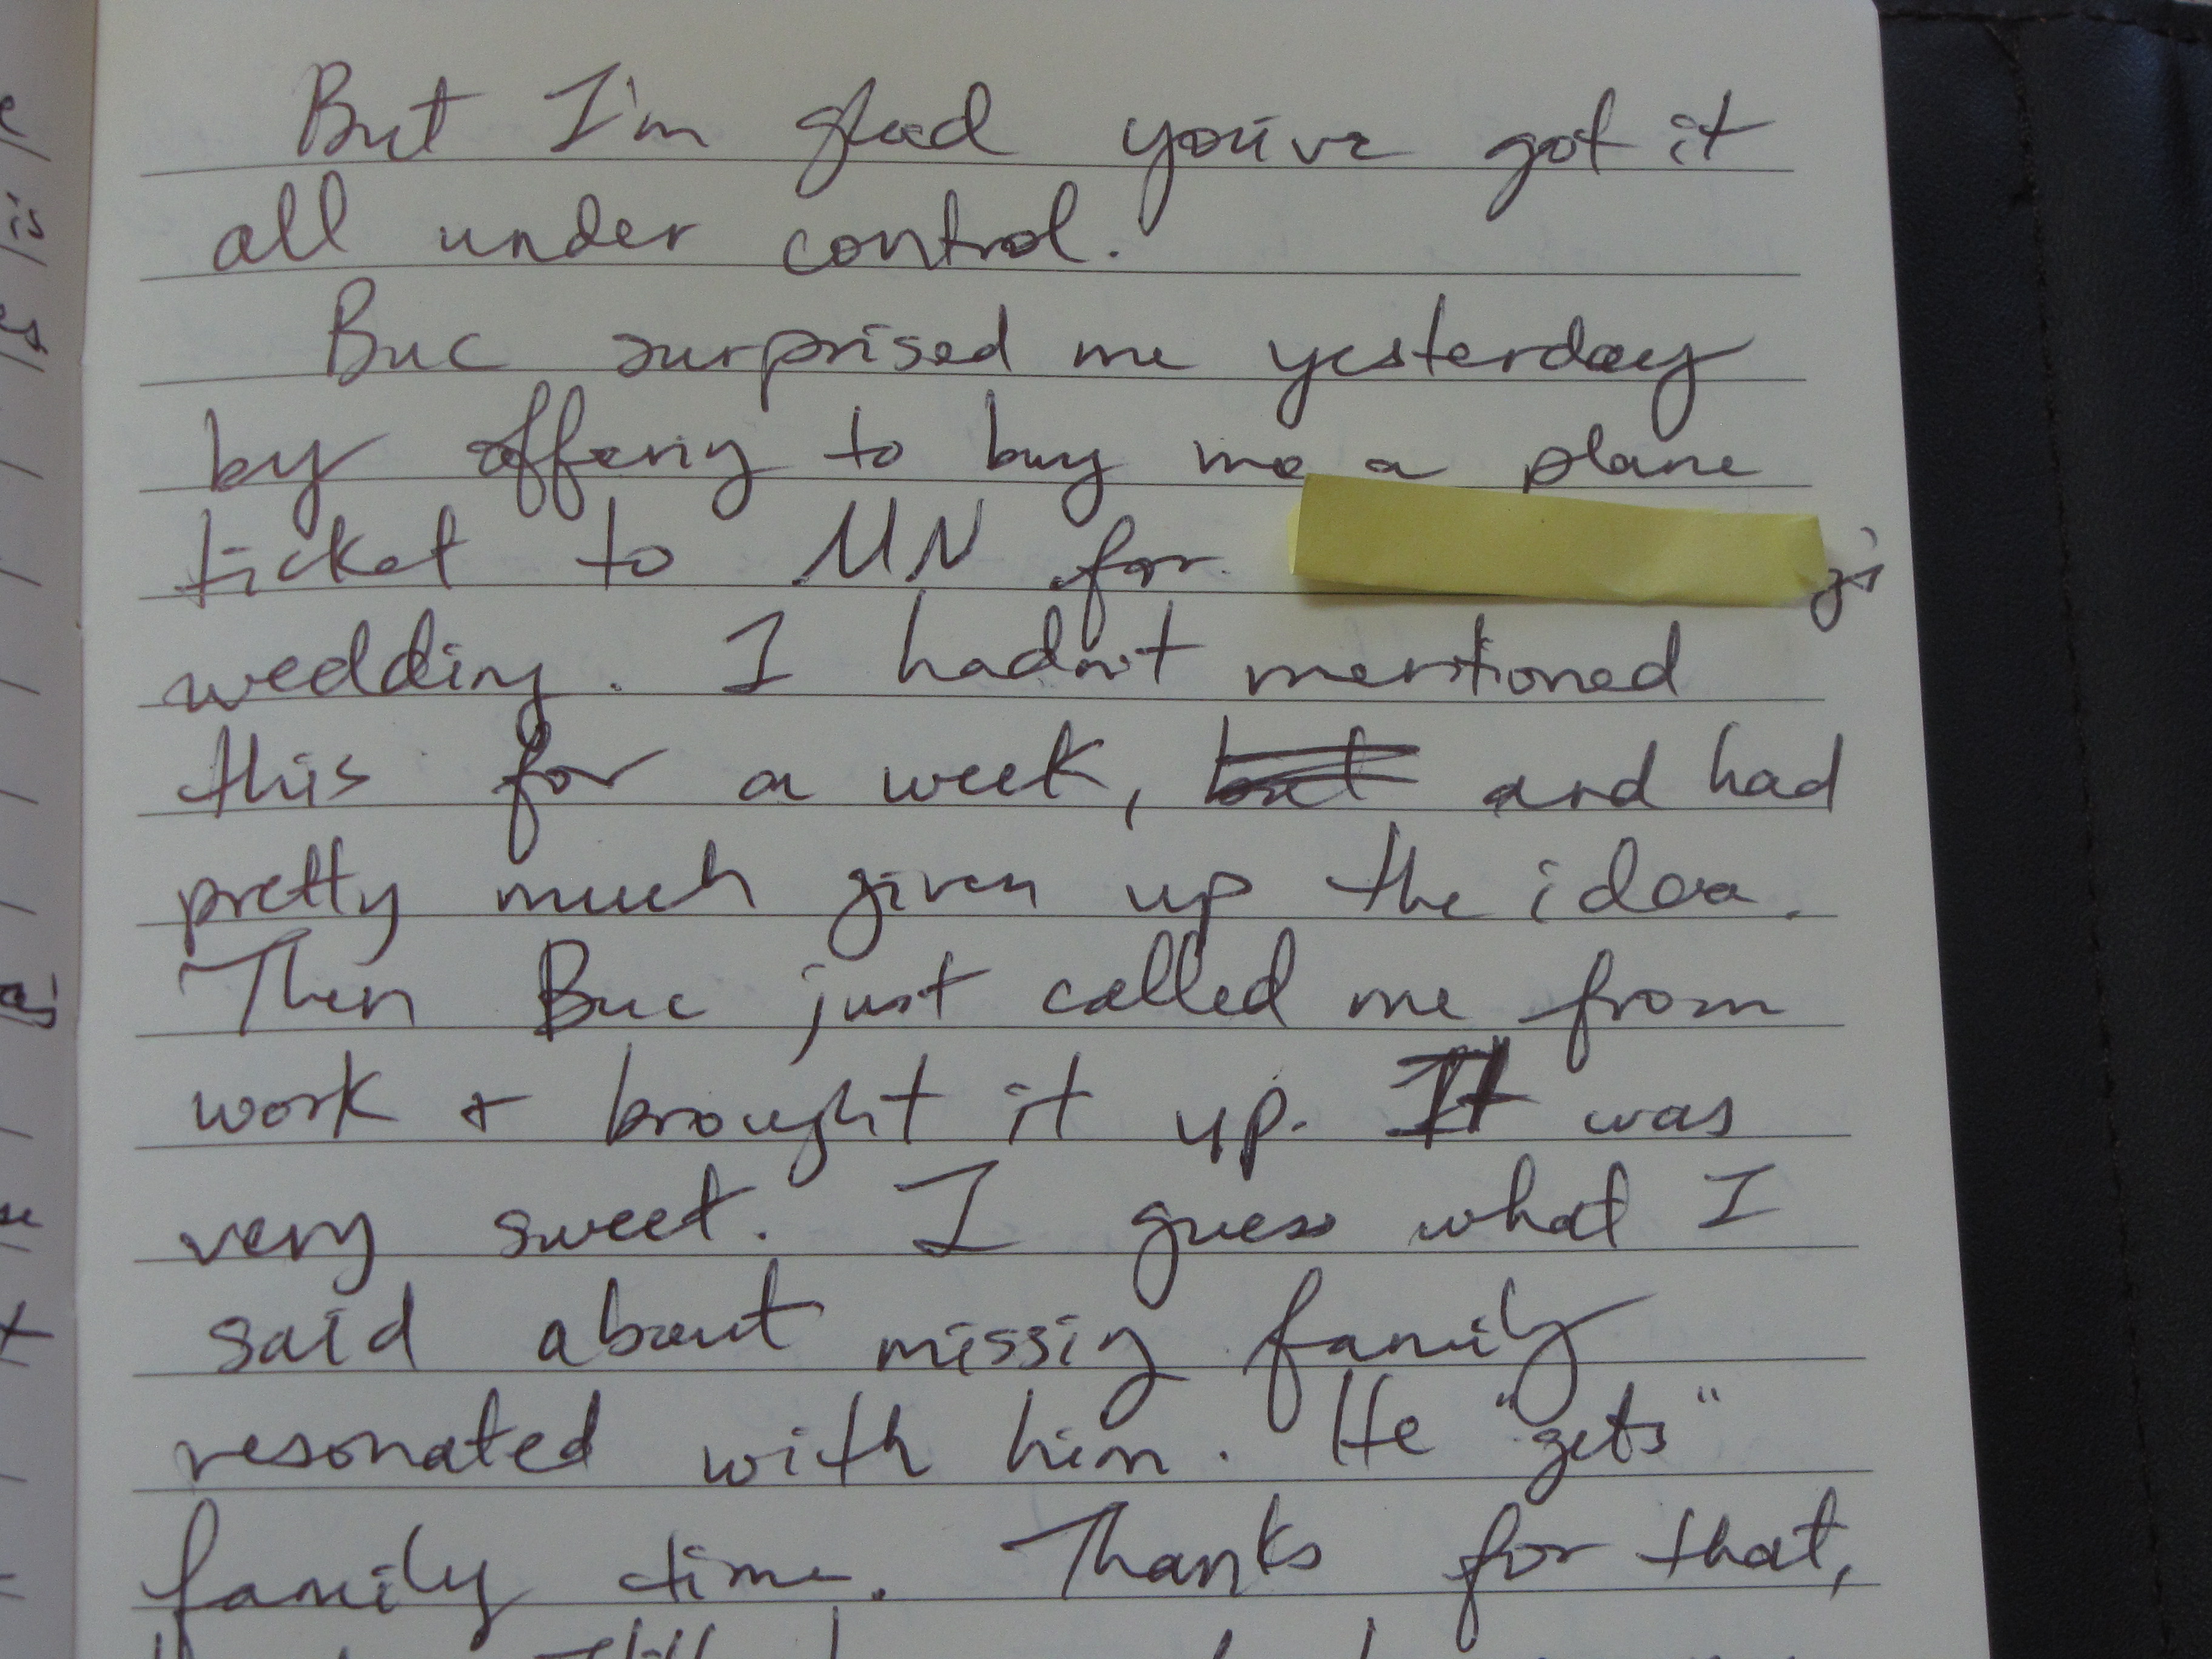 But I'm glad you've got it
all under control.
Buc surprised me yesterday
by offering to buy me a plane
ticket to MN for
wedding. I hadn't mentioned
this for a week, but and had
pretty much given up the idea.
Then Buc just called me from
work + brought it up. It was
very sweet. I guess what I
said about missing family
resonated with him. He "gets"
family time. Thanks for that,